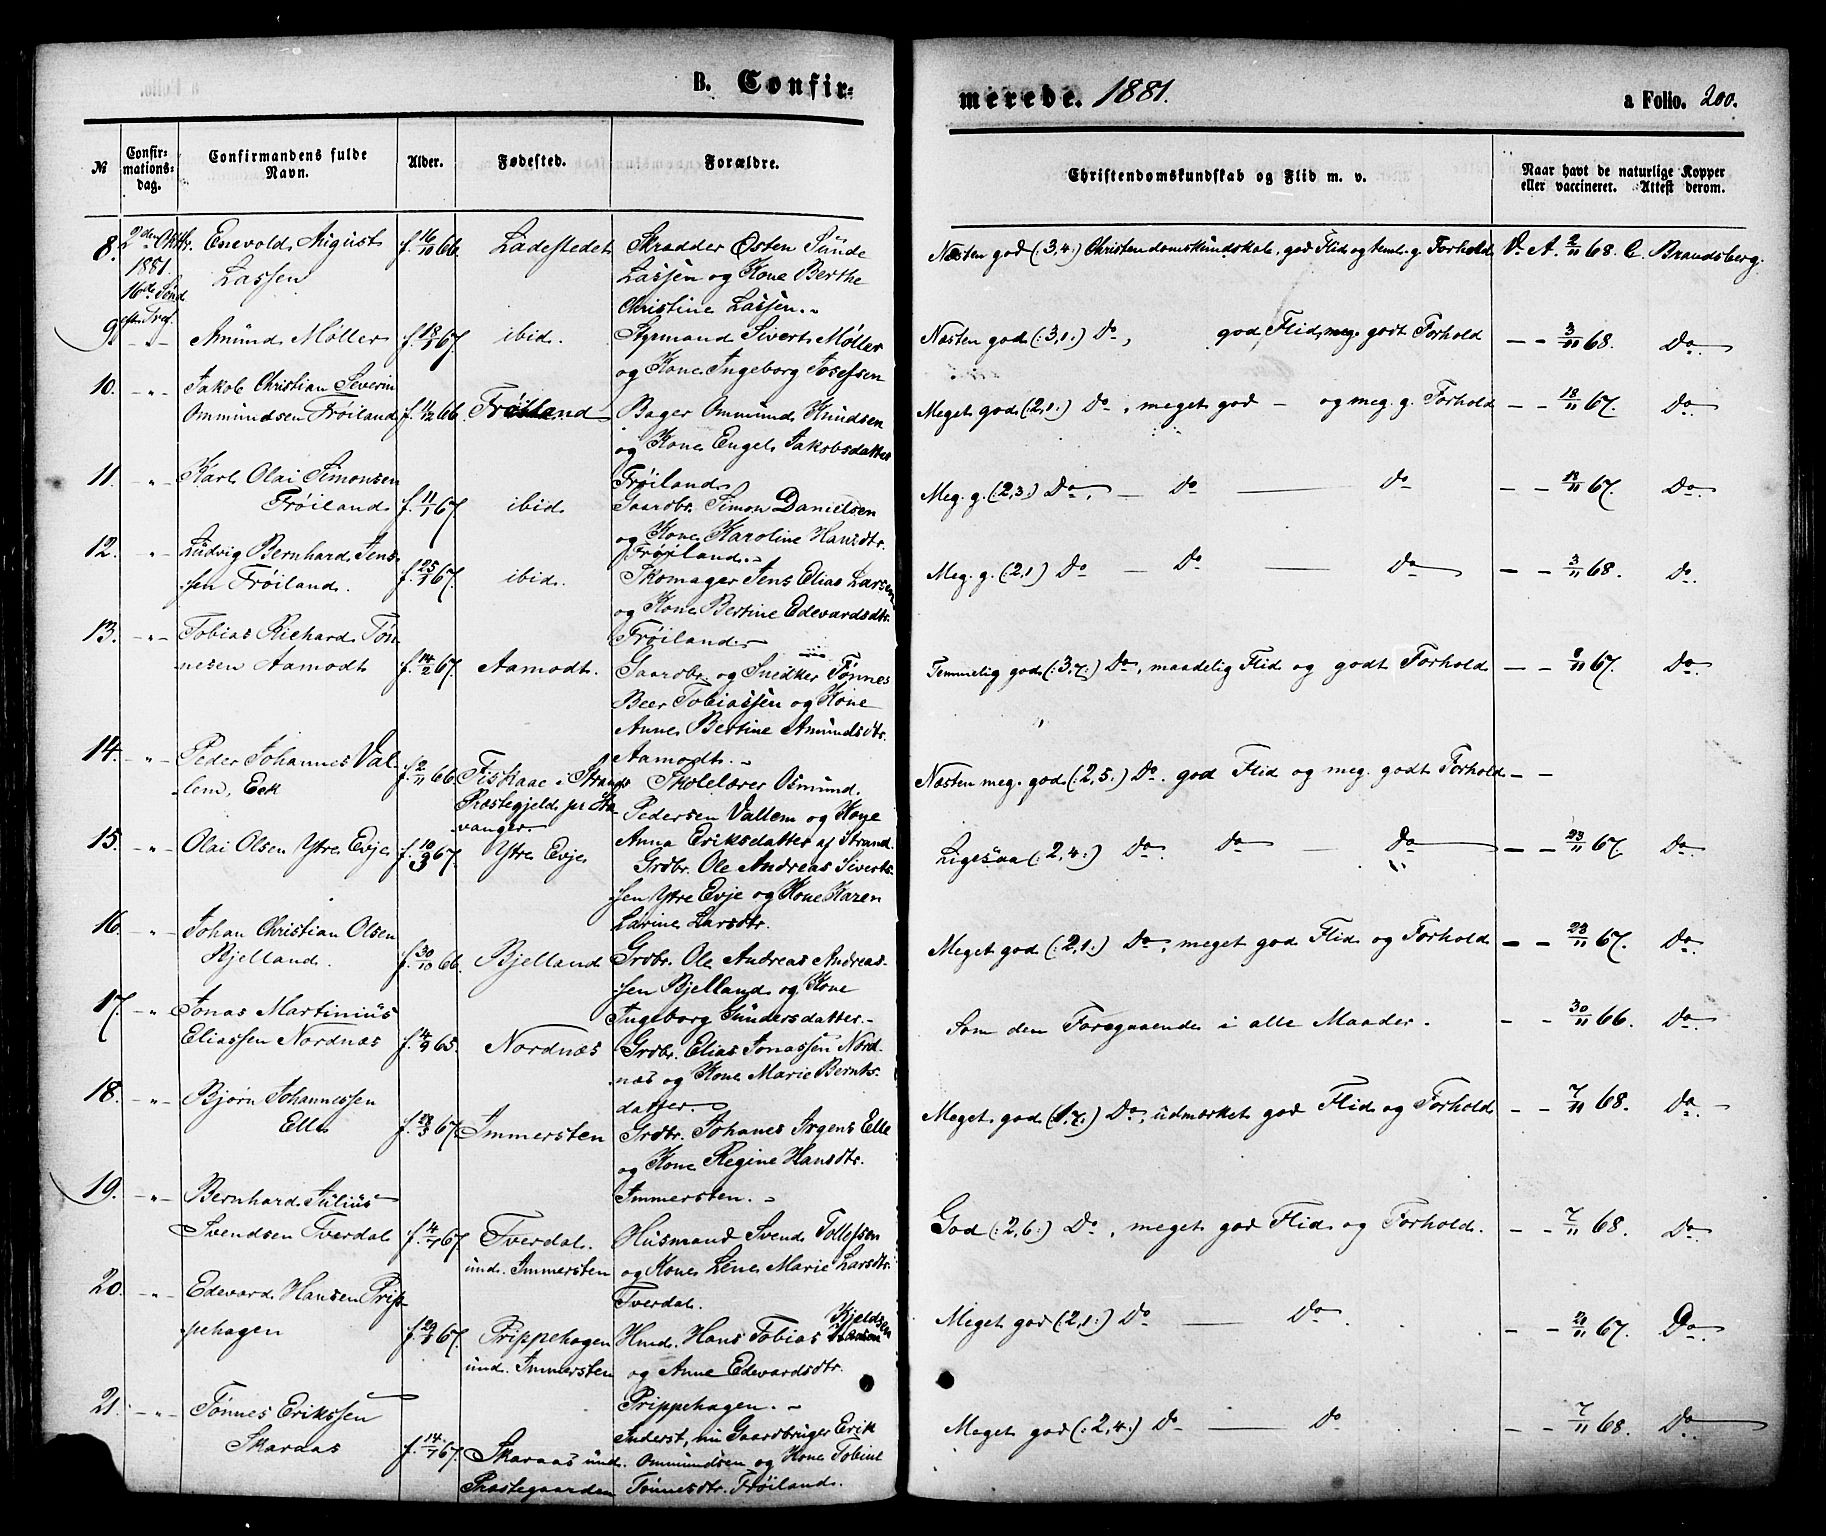 B. Confir-
merede. 1881.
a Folio. 200.
№
Confir-
mations-
dag.
Confirmandens fulde
Navn.
Alder.
Fødested.
Forældre.
Christendomskundskab og Flid m. v.
Naar havt de naturlige Kopper
eller vaccineret. Attest derom.
8. 2den Oktbr. Enevold August f. 16/10 66. Ladestedet Skrædder Østen Sunde Næsten god (:3,4:) Christendomskundskab, god Flid og teml. g. Forhold V. A. 2/11 68. C. Brandsberg.
1881. Lassen Lassen og Kone Berthe
16de Sønd. Christine Lassen.
efter Tref.
9. -"- Amund Møller f. 18/1 67. ibid. Styrmand Sivert Møller Næsten god (:3,1:) Do, god Flid, meg. godt Forhold - - 3/11 68. Do
og Kone Ingeborg Josefsen
10. -"- Jakob Christian Severin
Ommundsen Frøiland f. 11/12 66. Frøiland Bager Ommund Knudsen Meget god (2,1:) Do, meget god - og meg. g. Forhold - - 18/11 67. Do.
og Kone Engel Jakobsdatter
11. " Karl Olai Simonsen Frøiland
Frøiland f. 11/1 67. ibid Gaardbr. Simon Danielsen Meg. g. (:2,3:) Do, - Do - Do - - 12/11 67. Do
og Kone Karoline Hansdtr.
12. " Ludvig Bernhard Jens- Frøiland.-
sen Frøiland. f. 25/1 67. ibid. Skomager Jens Elias Larsen Meg. g. (:2,1) Do - Do - Do - - 3/11 68. Do.
og Kone Bertine Edevardsdtr.
13. -"- Tobias Richard Tøn- Frøiland
nesen Aamodt f. 14/2 67. Aamodt. Gaardbr. og Snedker Tønnes Temmelig god (:3,7:) Do, maadelig Flid og godt Forhold - - 8/11 67. Do
Beer Tobiassen og Kone
Anne Bertine Amundsdtr.
14. -"- Peder Johannes Val- Aamodt.-
lem, Eek f. 2/11 66. Fiskaae i Strands Skolelærer Osmund Næsten meg. god (:2,5:) Do. god Flid og meg. godt Forhold - -
Præstegjeld pr Sta- Pedersen Vallem og Kone
vanger. Anna Eriksdatter af Strand.
15. -"- Olai Olsen Ytre Evje f. 10/3 67. Ytre Evje Grdbr. Ole Andreas Siverts- Ligesaa (:2,4:) Do. Do - Do - - 23/11 67. Do.
sen Ytre Evje og Kone Karen
Lavine Larsdtr.
16. -"- Johan Christian Olsen
Bjelland. f. 30/10 66. Bjelland Grdbr. Ole Andreas Andreas- Meget god (:2,1:) Do, meget god Flid og Forhold - - 23/11 67. Do.
sen Bjelland og Kone
17. -"- Jonas Martinius Ingeborg Gundersdatter.-
Eliassen Nordnæs f. 4/9 65. Nordnæs Grdbr. Elias Jonassen Nord- Som den Foregaaende i alle Maader. - - 30/11 66. Do
næs og Kone Marie Bernts-
18. -"- Bjørn Johannessen datter.
Elle f. 23/3 67. Immersten Grdbr. Johanes Irgens Elle Meget god (1,7:) Do, udmærket god Flid og Forhold - - 7/11 68. Do
og Kone Regine Hansdtr.
19. -"- Bernhard Julius Immersten.-
Svendsen Tverdal f. 4/7 67. Tverdal Husmand Svend Tollefsen God (:2,6:) Do, meget god Flid og Forhold. - - 7/11 68. Do
und. Immersten og Kone Lene Marie Larsdtr.
20. -"- Edevard Hansen Prip- Tverdal.
pehagen f. 29/4 67. Prippehagen Hmd. Hans Tobias Kjeldsen Meget god (2,1:) Do - Do - - 21/11 67. Do
und. Immersten og Anne Edevardsdtr.
21. -"- Tønnes Erikssen Prippehagen.-
Skaraas f. 14/7 67. Skaraas und. Inderst, nu Gaardbruger Erik Meget god (:2,4:) Do - Do - - 7/11 68. Do
Præstegaarden Ommundsen og Kone Tobine
Tønnesdtr. Frøiland.